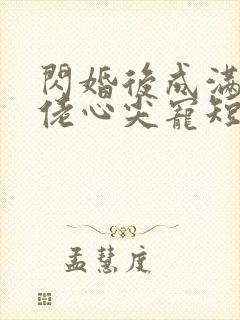 閃婚後成滿
佬心尖寵短
孟慧庭